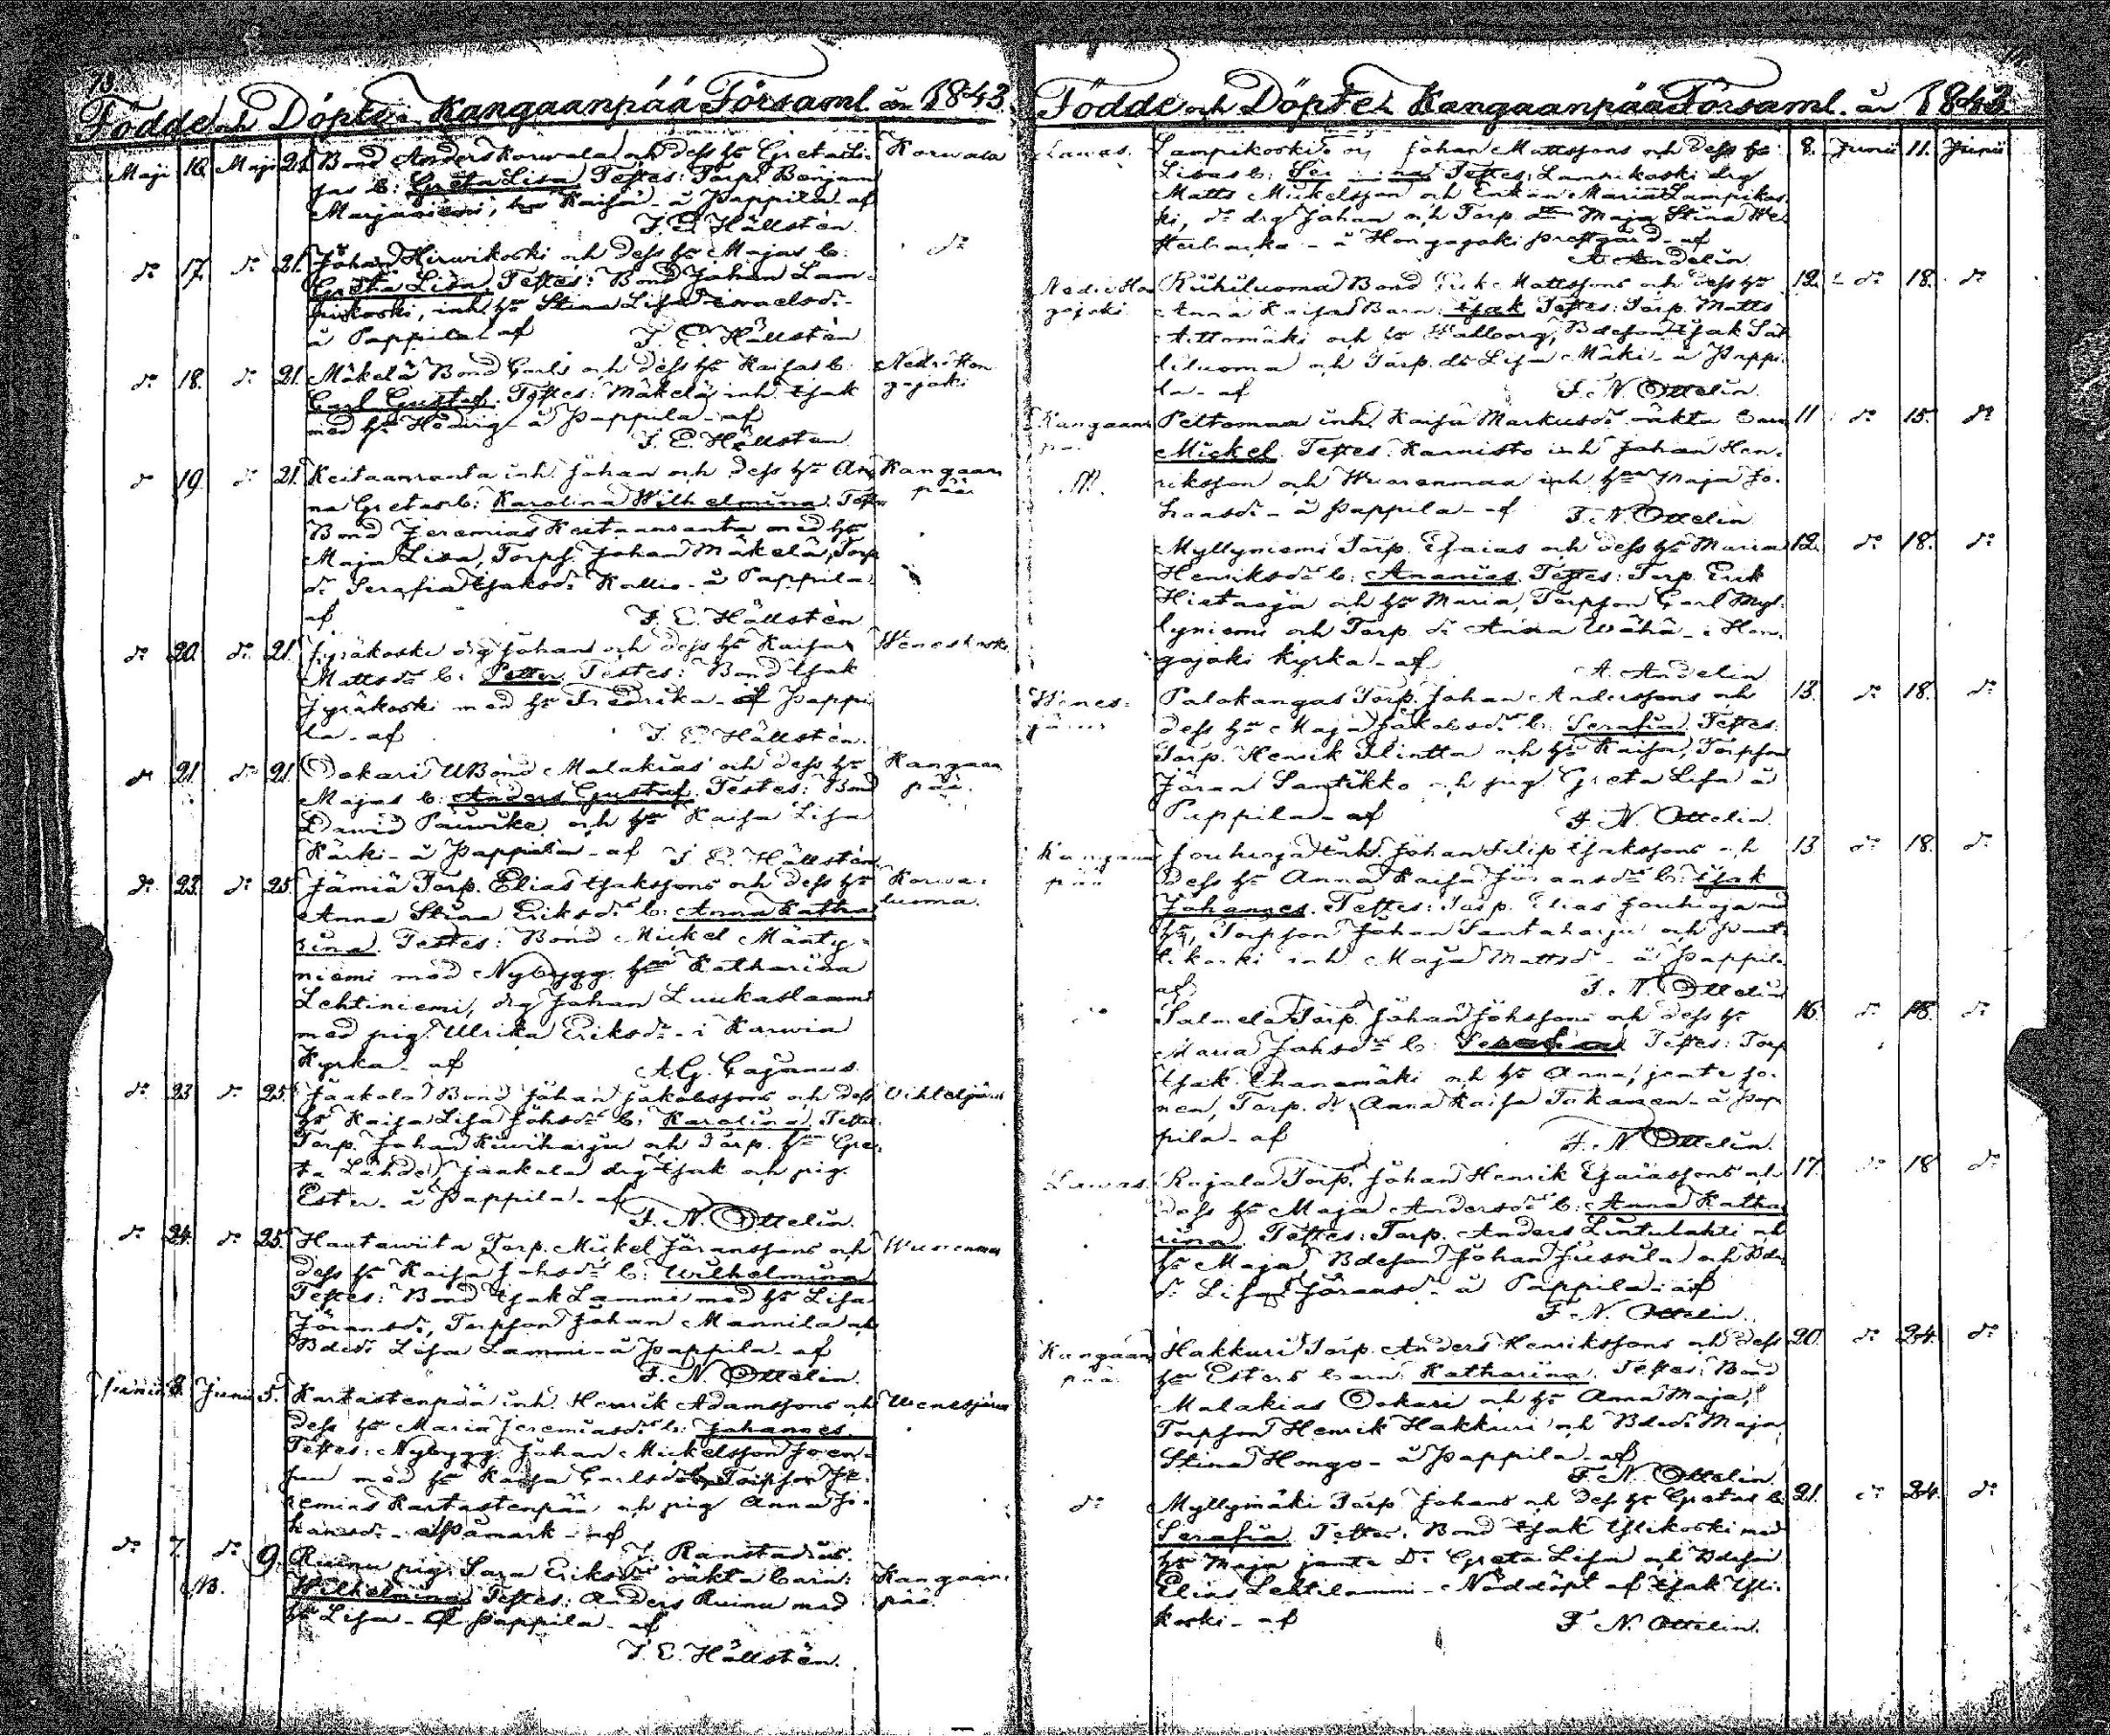 Födde och Döpte i Kangaanpää Församl. år 1843.
Maji 16. Maji 21. Bond Anders Korwala och dess hu Greta Li- Korwala
sas b: Greta Lisa Testes: Torp. Benjam
Marjaniemi, hu Kaisa - å Pappila af
F. E. Hällstén.
do 17. do 21. Johan Hirwikoski och dess hu Majas b: do
Greta Lisa Testes: Bond Johan Lam-
pikoski, inh. hu Stina Lisa
å Pappila af F. E. Hällstén
do 18. do 21. Mäkelä Bond Carls och dess hu Kaisas b: Nedre Hon
Carl Gustaf. Testes: Mäkelä inh. Isak gojoki
med hu Hedvig å Pappila af
F. E. Hällstén
do 19. do 21. Keitaanranta inh. Johan och dess hu An- Kangaan
na Gretas b: Karolina Wilhelmina. Test. pää
Bond Jeremias Keitaanranta med hu
Maja Lisa, Torps. Johan Mäkelä, Torp
dr Serafia Isaksdr Kallio - å Pappila
af F. E. Hällstén
do 20. do 21. Jyräkoski drg Johans och dess hu Kaisa Weneskoski
Mattsdr b: Petter Testes: Bond Isak
Jyräkoski med hu Fredrika - å Pappi
la - af F. E. Hällstén.
do 21. do 21. Ockari UBond Malakias och dess hu Kangaan
Majas b: Anders Gustaf. Testes: Bond pää.
David och hu Kaisa Lisa
Kärki - å Pappila - af F. E. Hällstén
do 23. do 25. Jämiä Torp. Elias Isakssons och dess hu Korwa-
Anna Stina Eriksdr b: Anna Katha luoma.
rina. Testes: Bond Mickel Mänty-
niemi med Nybygg. hu Katharina
Lehtiniemi, drg Johan Luukaslammi
med pig. Ulrika Eriksdr - i Karwia
Kyrka - af A. G. Cajanus.
do 23 do 25. Jaakola Bond Johan Jakobssons och dess Vihteljärvi
hu Kaisa Lisa Johsdr b: Karolina. Testes:
Torp. Johan Kiwiharju och Torp. hu Gre-
ta Lähde, Jaakola drg Isak och pig.
Ester - å Pappila - af
F. N. Ottelin.
do 24. do 25. Hautawiita Torp. Mickel Jöranssons och
dess hu Kaisa Johsdr b: Wilhelmina
Testes: Bond Isak Lammi med hu Lisa
Jöransdr, Torpson Johan Mannila och
Bdedr Lisa Lammi - å Pappila - af
F. N. Ottelin.
Junii 3. Junii 5. Kartastenpää inh. Henrik Adamssons och Wenesjärvi
dess hu Maria Jeremiasdr b: Johannes
Testes: Nybygg. Johan Mickelsson
med hu Kaisa Carlsdr, Torpson Je-
remias Kartastenpää och pig Anna Jo-
hansdr - å Påmark - af
J. Ranstadius.
do 7. do 9. Ruinu pig. Sara Eriksdr oäkta barn: Kangaan
NB. Wilhelmina Testes: Anders Ruinu med pää
hu Lisa - å Pappila - af
F. E. Hällstén.
Födde och Döpte i Kangaanpää Församl. år 1843.
Lawas. Lampikoski Johan Mattssons och dess hu 8. Junii 11. Junii
Lisas b: Testes: Lampikoski drg
Matts Mickelsson och Enkan Maria Lampikos-
ki, do drg Johan och Torp. Maja Stina We-
å Hongojoki prestgård - af
A. Andelin.
Nedre Hon Riihiluoma Bond Erik Mattssons och dess hu 12. do 18. do
gojoki Anna Kaisas Barn: Isak Testes: Torp. Matts
Attomäki och hu Walborg, Bdeson Isak
och Torp. dr Lisa Mäki - å Pappi-
la - af F. N. Ottelin.
Kangaan Peltomaa inh. Kaisa Markusdr oäkta barn 11 do 15. do
Mickel. Testes: Kannisto inh. Johan Hen-
riksson och inh. hu Maja Jo-
hansdr - å Pappila - af F. N. Ottelin
Myllyniemi Torp. Esaias och dess hu Maria 12. do 18. do
Henriksdr b: Ananias. Testes: Torp. Erik
Hietaoja och hu Maria, Torpson Carl Myl-
lyniemi och Torp. dr Anna Wähä - i Hon-
gojoki Kyrka - af A. Andelin
Wenes- Palokangas Torp. Johan Anderssons och 13. do 18. do
järvi dess hu Maja Jakobsdr b: Serafia. Testes:
Torp. Henrik Flintta och hu Kaisa, Torpson
Jöran Santikko och pig. Greta Lisa å
Pappila - af F. N. Ottelin.
Kangaan Jouhioja inh. Johan Filip Isakssons och 13. do 18. do
pää dess hu Anna Kaisa Jöransdr b: Isak
Johannes. Testes: Torp. Elias Jouhioja med
hu, Torpson Johan Santaharju och
inh. Maja Mattsdr - å Pappila
af F. N. Ottelin
Salmela Torp. Johan Johssons och dess hu 16. do 18. do
Maria Johsdr b: Serafia Testes: Torp
Isak Ihanamäki och hu Anna,
Torp. dr Anna Kaisa - å Pap-
pila - af F. N. Ottelin.
Lawas. Rajala Torp. Johan Henrik Esaiassons och 17. do 18 do
dess hu Maja Andersdr b: Anna Katha
rina. Testes: Torp. Anders Lintulahti och
hu Maja, Bdeson Johan Jussila och Bde-
dr Lisa Jöransdr å Pappila - af
F. N. Ottelin.
Kangaan Hakkuri Torp. Anders Henrikssons och dess 20. do 24. do
pää hu Esters barn: Katharina. Testes: Bond
Malakias Ockari och hu Anna Maja,
Torpson Henrik Hakkuri och Bdedr Maja
Stina Hongo - å Pappila - af
F. N. Ottelin.
do Myllymäki Torp Johans och dess hu Gretas b: 21. do 24. do
Serafia. Testes: Bond Isak Ylikoski med
hu Maja jemte Dr Greta Lisa och Bdeson
Elias Lehtilammi - Nöddöpt af Isak Yli-
koski - af F. N. Ottelin.